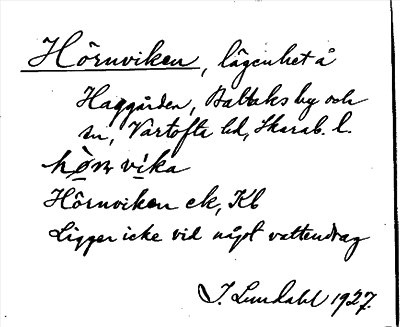 Hörnviken, lägenhet å
Haggården, Baltaks by och
sn, Vartofta hd, Skarab. l.
hö̀ɳ vi̇ka
Hörnviken ek, Kb
Ligger icke vid något vattendrag
I. Lundahl 1927.